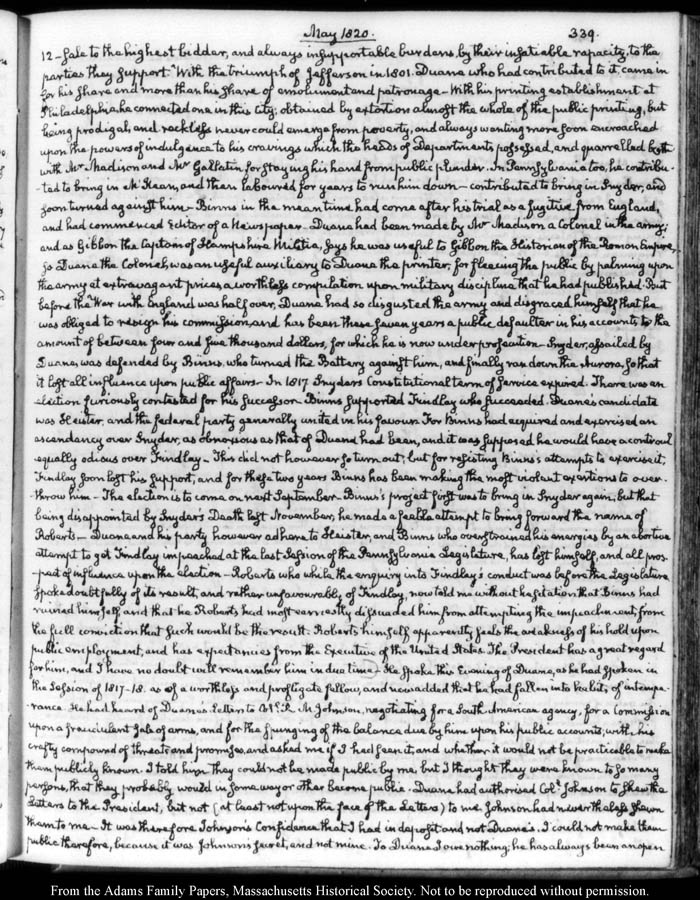 May 1820.
339.
12 - sale to the highest bidder, and always insupportable burdens, by their insatiable rapacity, to the
parties they support." With the triumph of Jefferson in 1801. Duane who had contributed to it, came in
for his share and more than his share of emolument and patronage - With his printing establishment at
Philadelphia he connected one in this city; obtained by extortion almost the whole of the public printing, but
being prodigal, and reckless never could emerge from poverty, and always wanting more soon encroached
upon the powers of indulgence to his cravings which the heads of Departments possessed, and quarrelled both
with Mr Madison and Mr Gallatin for staying his hand from public plunder. In Pennsylvania too, he contribu-
-ted to bring in McKean, and then laboured for years to run him down - contributed to bring in Snyder, and
soon turned against him - Binns in the mean time had come after his trial as a fugitive from England,
and had commenced Editor of a Newspaper - Duane had been made by Mr Madison a Colonel in the army;
and as Gibbon the Captain of Hampshire Militia, says he was useful to Gibbon the Historian of the Roman Empire,
so Duane the Colonel, was an useful auxiliary to Duane the printer, for fleecing the public by palming upon
the army at extravagant prices, a worthless compilation upon military discipline that he had published. But
before the War with England was half over, Duane had so disgusted the army and disgraced himself that he
was obliged to resign his commission, and has been these seven years a public defaulter in his accounts to the
amount of between four and five thousand dollars, for which he is now under prosecution - Snyder, assailed by
Duane, was defended by Binns, who turned the Battery against him, and finally ran down the Aurora, so that
it lost all influence upon public affairs - In 1817 Snyders Constitutional term of service expired. There was an
election furiously contested for his successor - Binns supported Findlay who succeeded. Duane's candidate
was Heister, and the federal party generally united in his favour. For Binns had acquired and exercised an
ascendancy over Snyder, as obnoxious as that of Duane had been, and it was supposed he would have a controul
equally odious over Findlay - This did not however so turn out; but for resisting Binns's attempts to exercise it,
Findlay soon lost his support, and for these two years Binns has been making the most violent exertions to over-
-throw him - The election is to come on next September - Binns's project first was to bring in Snyder again, but that
being disappointed by Snyder's Death last November, he made a feeble attempt to bring forward the name of
Roberts - Duane and his party however adhere to Heister, and Binns who overstrained his energies by an abortive
attempt to get Findlay impeached at the last Session of the Pennsylvania Legislature, has lost himself, and all pros-
-pect of influence upon the election - Roberts who while the enquiry into Findlay's conduct was before the Legislature
spoke doubtfully of its result, and rather unfavourably of Findlay, now told me without hesitation that Binns had
ruined himself, and that he Roberts had most earnestly dissuaded him from attempting the impeachment, from
the full conviction that such would be the result. Roberts himself apparently feels the weakness of his hold upon
public employment, and has expectancies from the Executive of the United States. The President has a great regard
for him, and I have no doubt will remember him in due time - He spoke this Evening of Duane, as he had spoken in
the Session of 1817-18. as of a worthless and profligate fellow, and now added that he had fallen into habits, of intempe-
-rance. He had heard of Duane's Letters to Col. R. M. Johnson, negotiating for a South-American agency, for a Commission
upon a fraudulent sale of arms, and for the spunging of the balance due by him upon his public accounts, with his
crafty compound of threats and promises, and asked me if I had seen it, and whether it would not be practicable to make
them publicly known. I told him they could not be made public by me, but I thought they were known to so many
persons, that they probably would in some way or other become public. Duane had authorised Coll. Johnson to shew the
Letters to the President, but not (at least not upon the face of the Letters) to me. Johnson had nevertheless shewn
them to me - It was therefore Johnson's Confidence that I had in deposit and not Duane's. I could not make them
public therefore, because it was Johnson's secret, and not mine. To Duane I owe nothing; he has always been an open
From the Adams Family Papers, Massachusetts Historical Society. Not to be reproduced without permission.